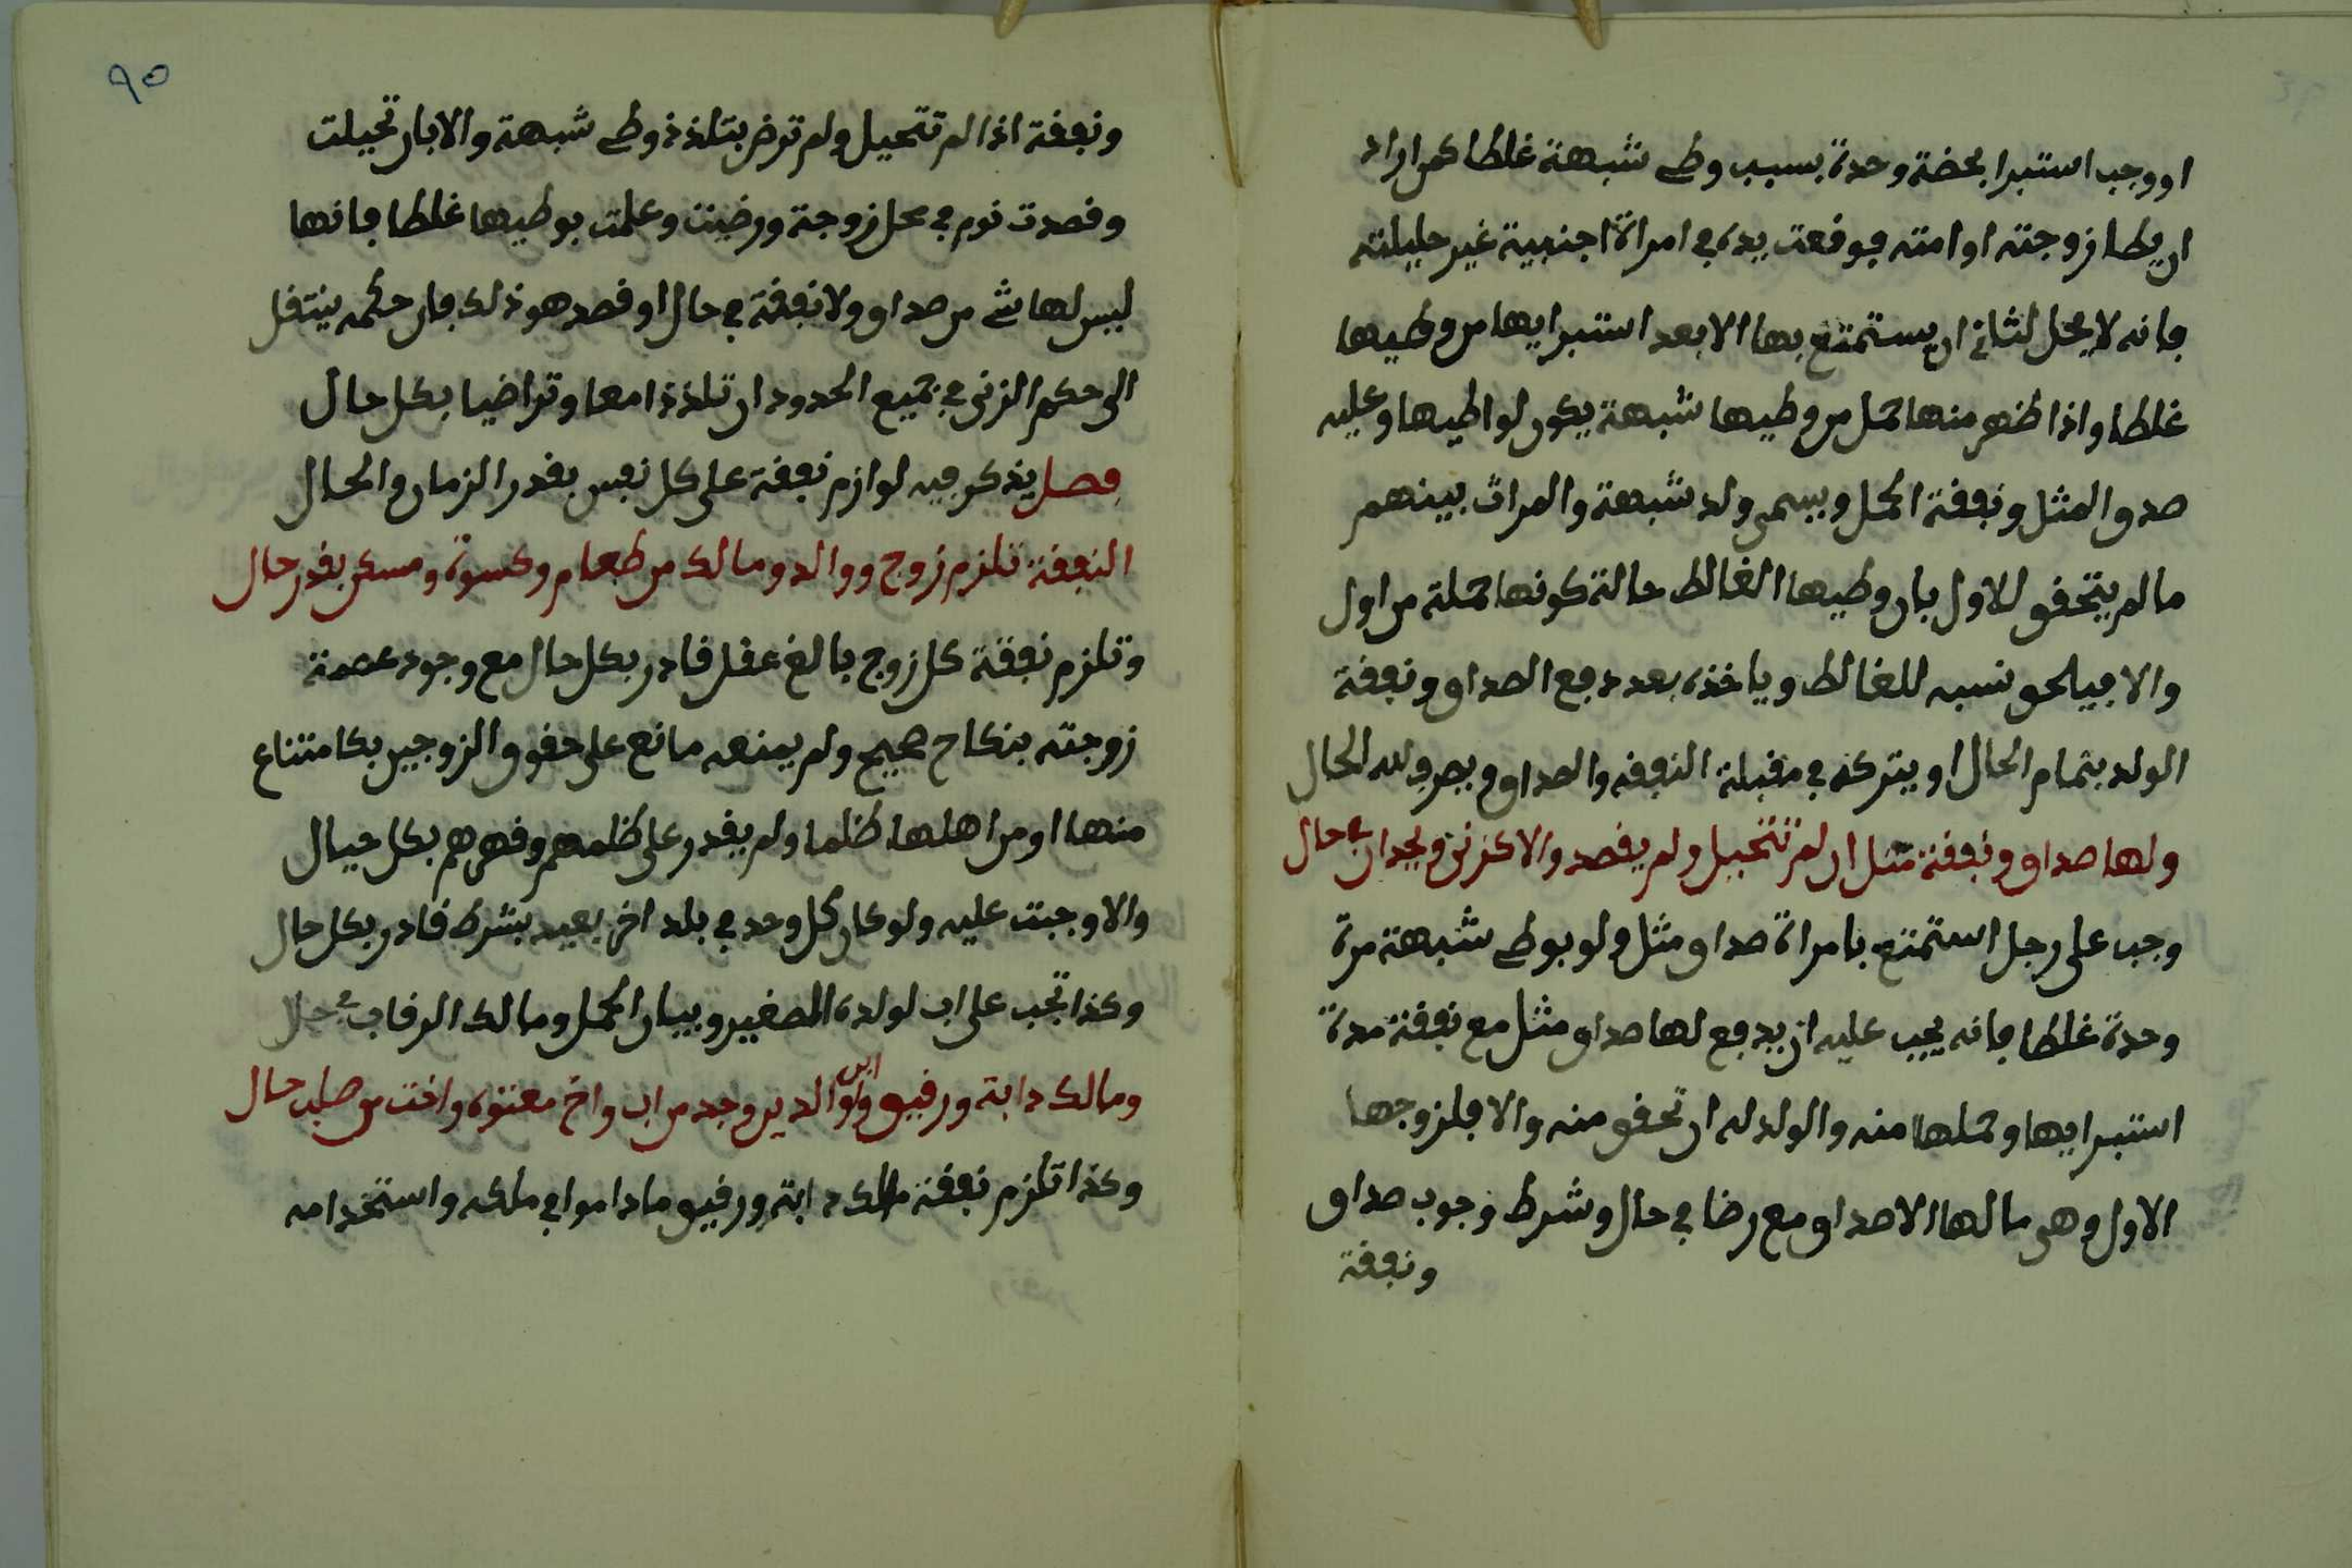 او وجب استبرا بحضة وحدة بسبب وطء شبهة غلطا كمن اراد
ان يطا زوجته او امته فوقعت يده في امراة اجنبية غير حليلته
فانه لا يحل لثاني ان يستمتع بها الا بعد استبرايها من وطيها
غلطا واذا ظهر منها حمل من وطيها شبهة يكون لواطيها وعليه
صداق المثل ونفقة الحمل ويسمى ولد شبهة والمراث بينهم
ما لم يتحقق للاول بان وطيها الغالط حالة كونها حملة من اول
والا فيلحق نسبه للغالط وياخذه بعد دفع الصداق ونفقة
الولد بتمام الحال او يتركه في مقبلة النفقه والصداق ويصرف لله الحال
ولها صداق ونفقة مثل ان لم تتحيل ولم يقصد والا كزنى ويحدان في حال
وجب على رجل استمتع بامراة صداق مثل ولو بوطء شبهة مرة
وحدة غلطا فانه يجب عليه ان يدفع لها صداق مثل مع نفقة مدة
استبرايها وحملها منه والولد له ان تحقق منه والا فلزوجها
الاول وهى ما لها الا صداق مع رضا في حال وشرط وجوب صداق
ونفقة
٩٥
ونفقة اذا لم تتحيل ولم ترض بتلذذ وطء شبهة والا بان تحيلت
وقصدت نوم في محل زوجة ورضيت وعلمت بوطيها غلطا فانها
ليس لها شء من صداق ولا نفقة في حال او قصد هو ذلك فان حكمه ينتقل
الى حكم الزنى في جميع الحدود ان تلذذا معا وتراضيا بكل حال
فصل يذكر فيه لوازم نفقة على كل نفس بقدر الزمان والحال
النفقة تلزم زوج ووالد ومالك من طعام وكسوة ومسكن بقدر حال
وتلزم نفقة كل زوج بالغ عقل قادر بكل حال مع وجود عصمة
زوجته بنكاح صحيح ولم يمنعه مانع على حقوق الزوجين بكامتناع
منها او من اهلها ظلما ولم يقدر على ظلمهم وقهرهم بكل حيال
والا وجبت عليه ولو كان كل وحد في بلد اخر بعيد بشرط قادر بكل حال
وكذا تجب على اب لولده الصغير وبيان الحمل ومالك الرقاب في حال
ومالك دابة ورفيق ولوالدين وجد من اب واخ معتوه واخت من صلب حال
وكذا تلزم نفقة مالك دابة ورفيق ما داموا في ملكه واستخدامه